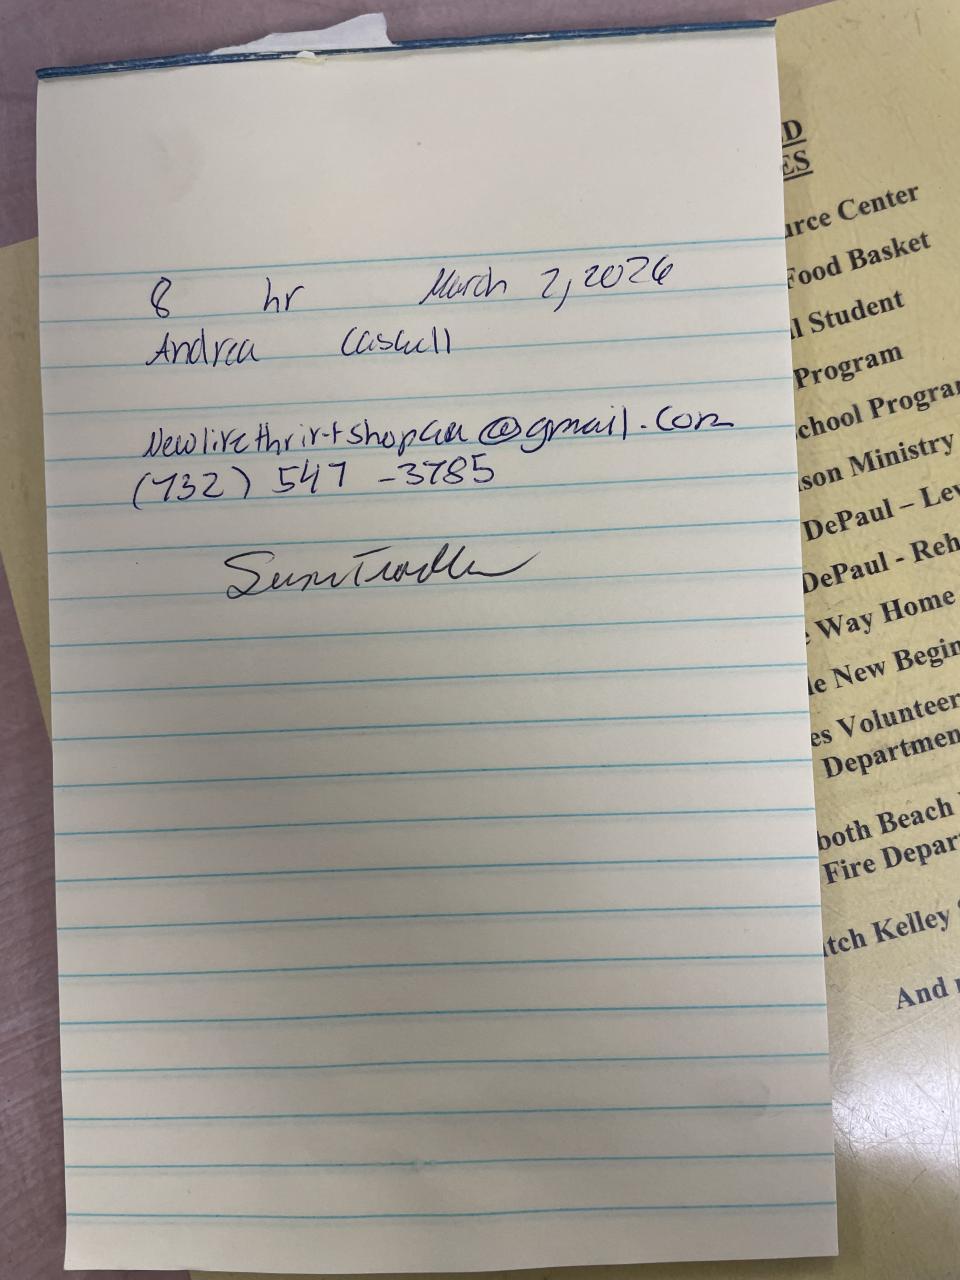 8 hr March 2, 2026
Andrea
@gmail.com
(732) 547-3785
D
ES
urce Center
Food Basket
l Student
Program
chool Program
son Ministry
DePaul – Lev
DePaul - Reh
Way Home
le New Begin
es Volunteer
Department
both Beach
Fire Depart
itch Kelley
And